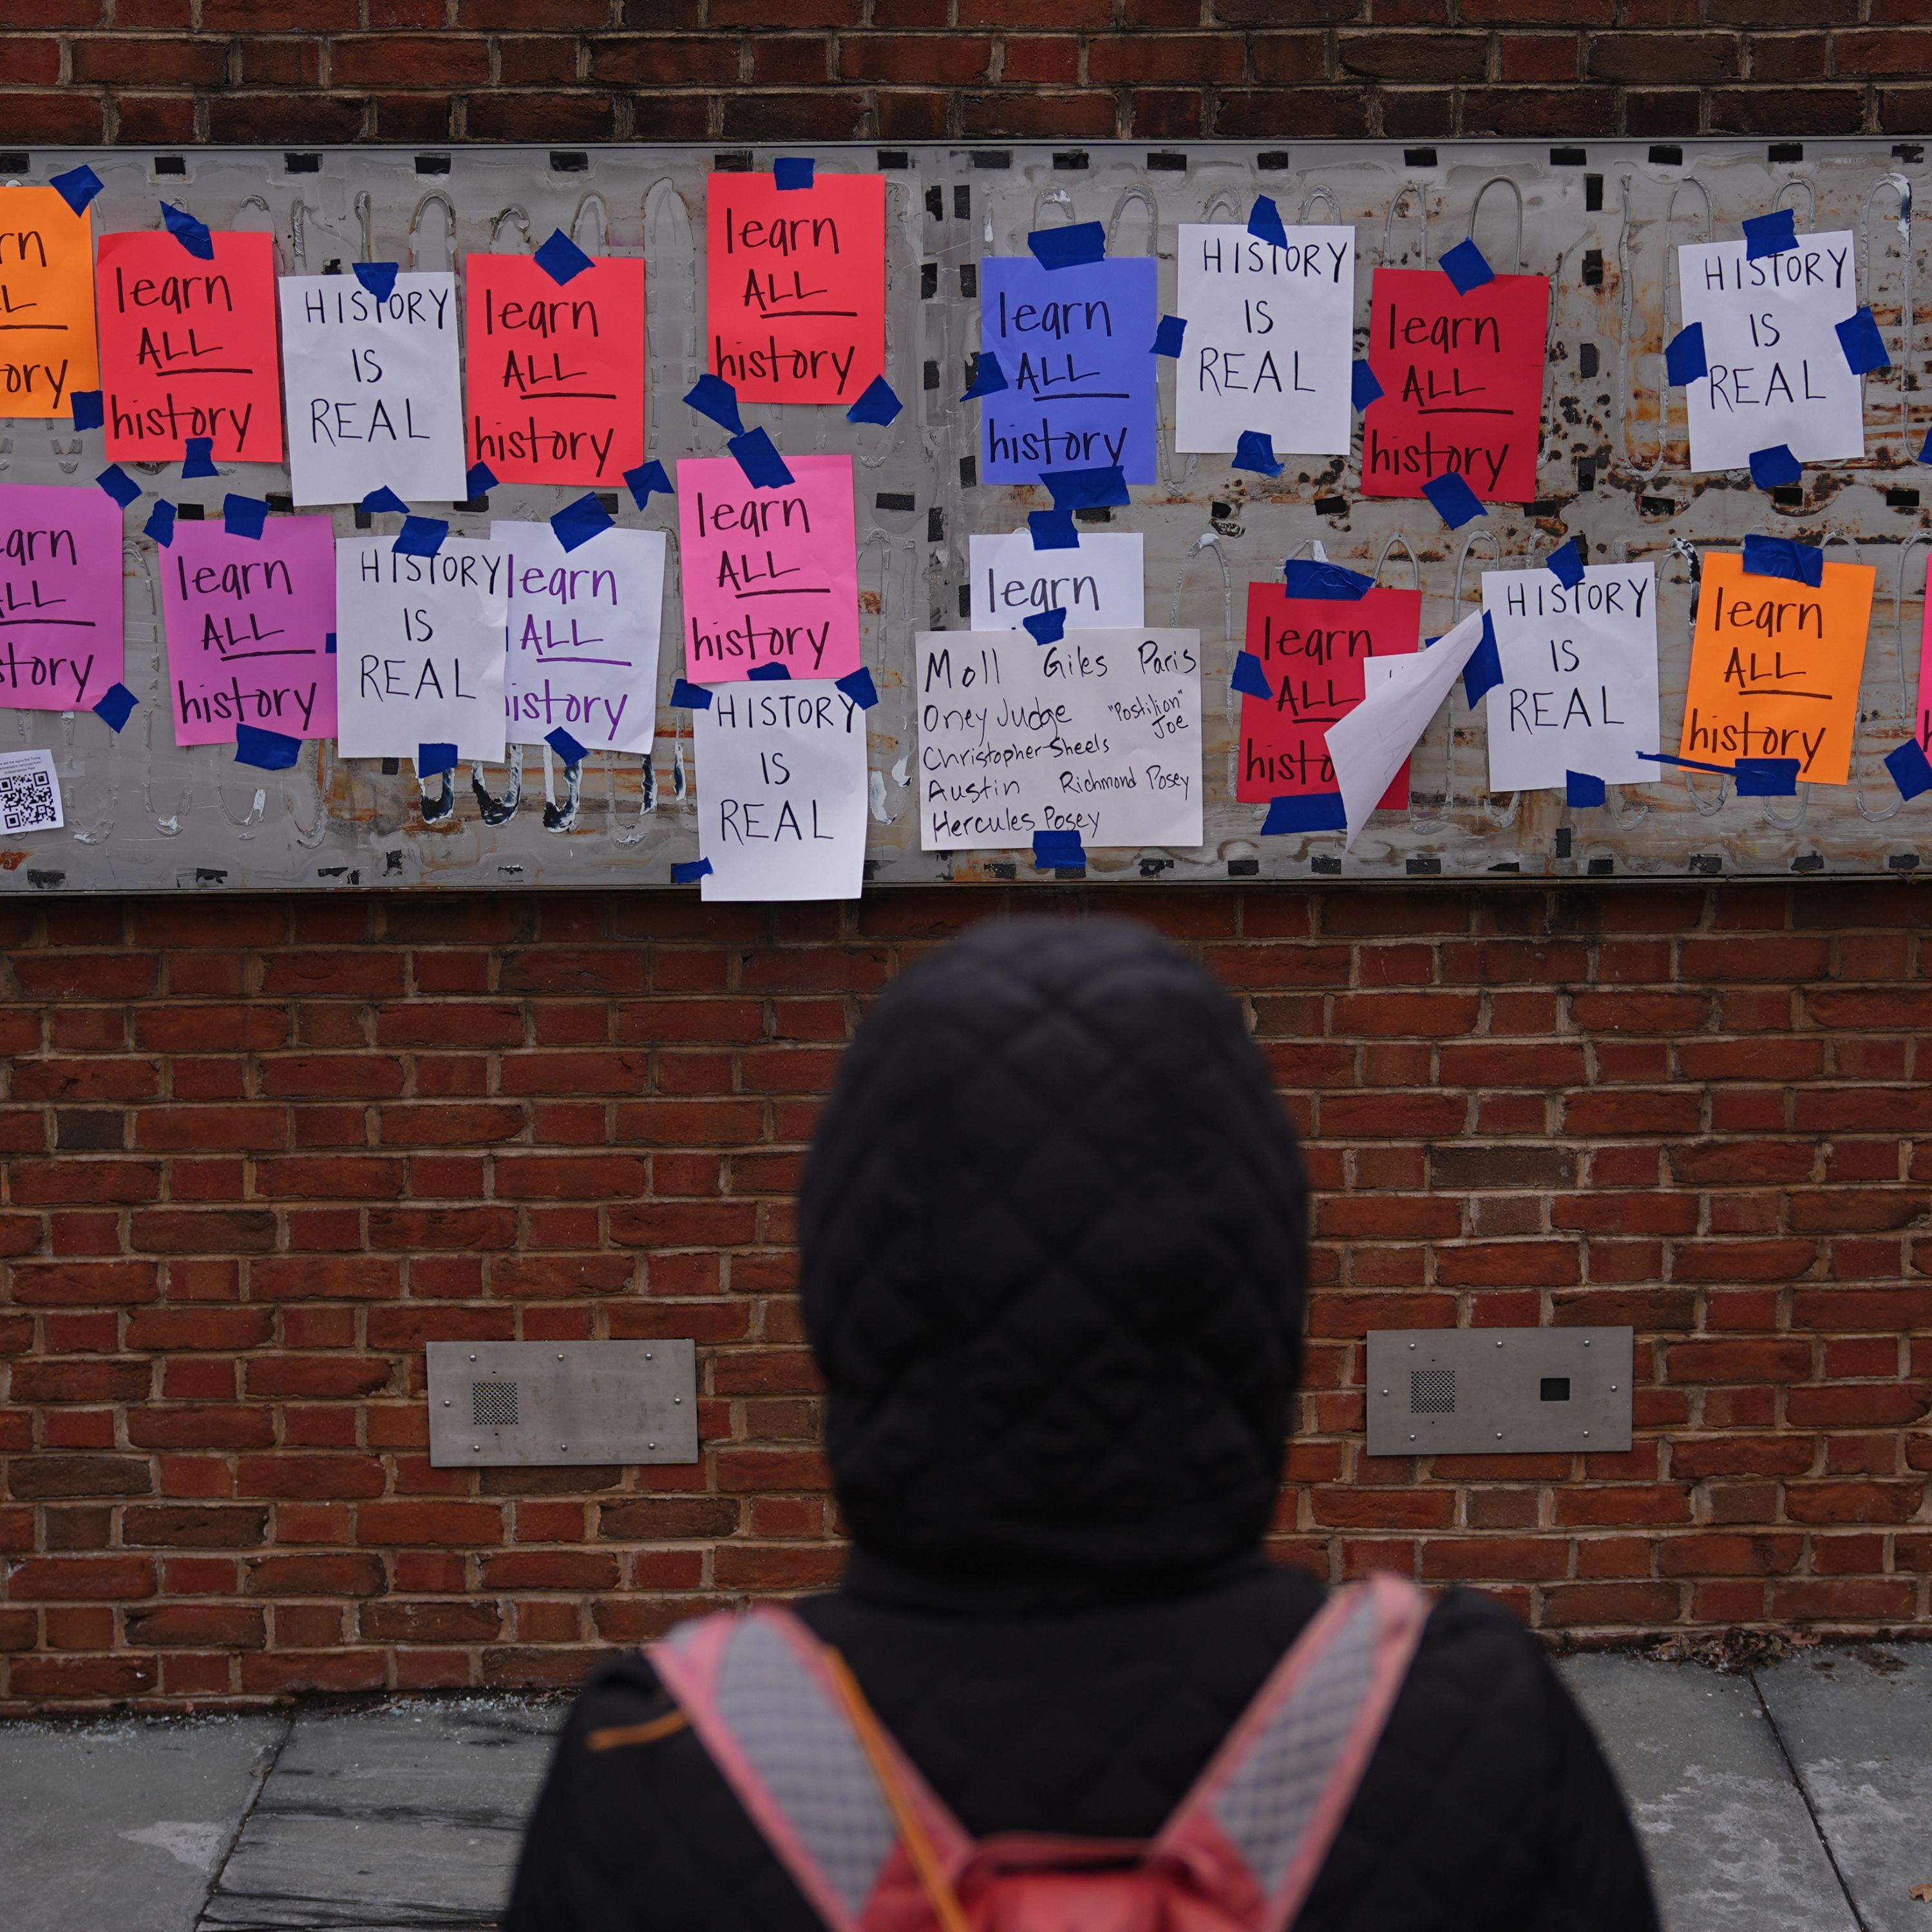 rn
LL
ory
learn
ALL
history
HISTORY
IS
REAL
learn
ALL
history
learn
ALL
history
learn
ALL
history
HISTORY
IS
REAL
learn
ALL
history
HISTORY
IS
REAL
earn
ALL
story
learn
ALL
history
HISTORY
IS
REAL
learn
ALL
history
learn
ALL
history
HISTORY
IS
REAL
learn
Moll Giles Paris
Oney Judge "Postilion" Joe
Christopher Sheels
Austin Richmond Posey
Hercules Posey
learn
ALL
histo
HISTORY
IS
REAL
learn
ALL
history
h